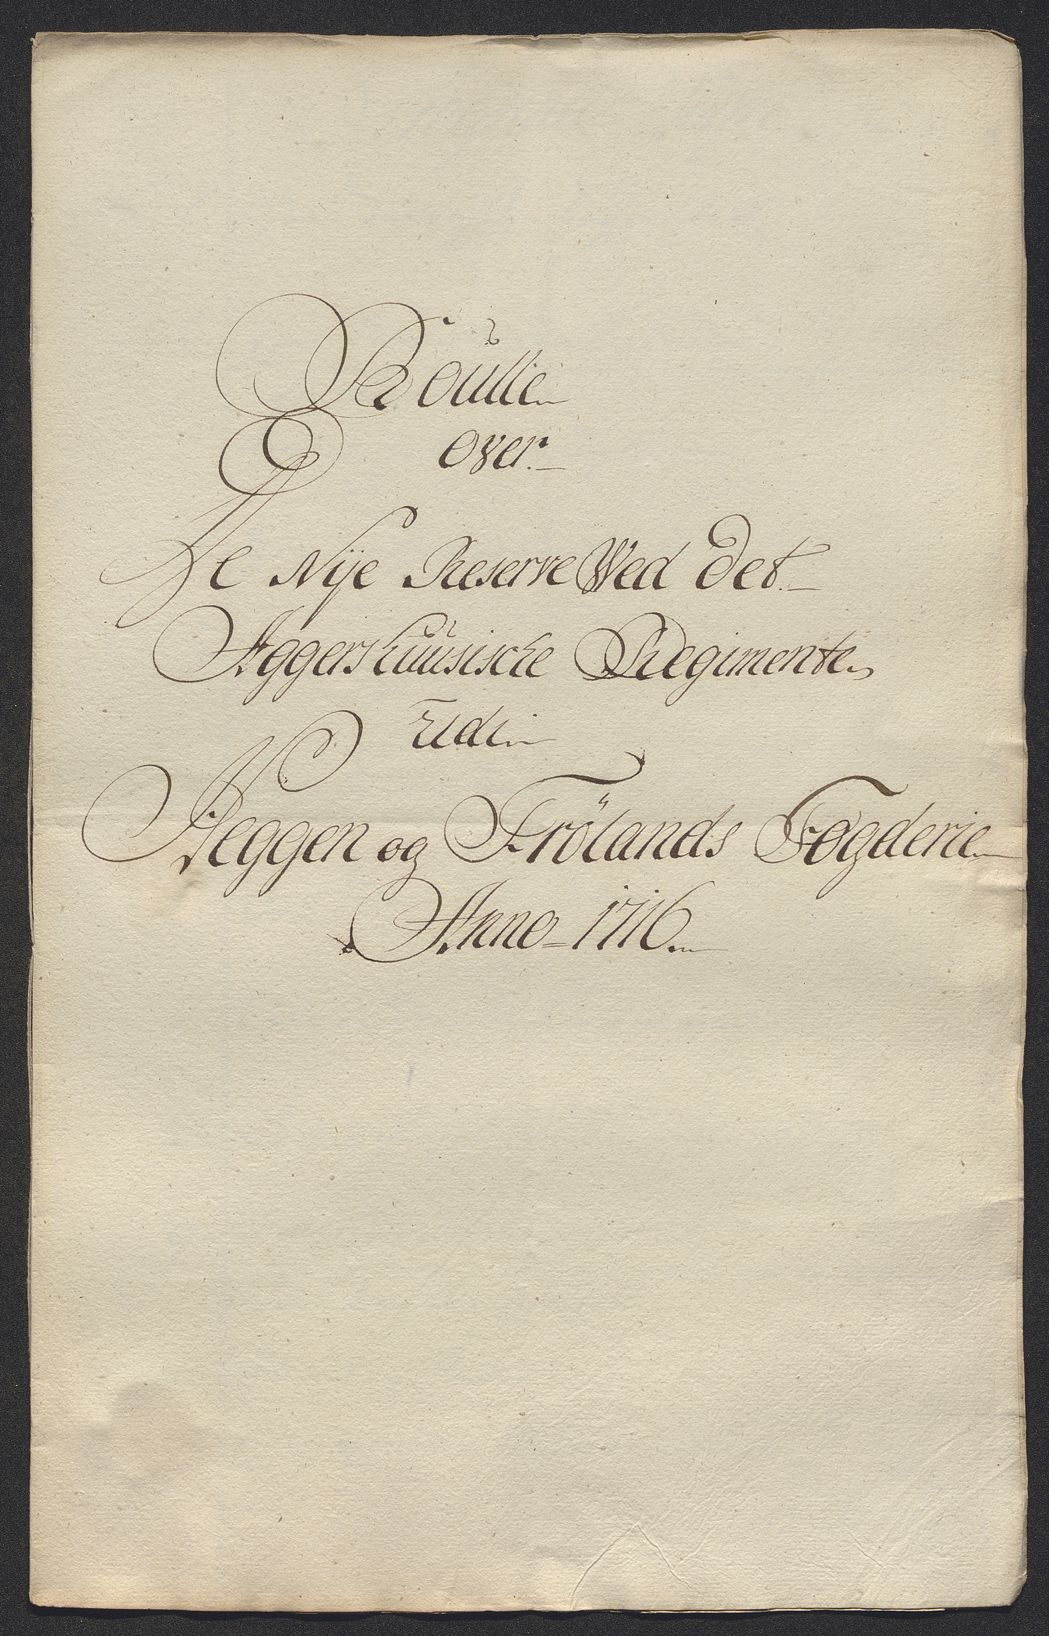 Roulle
over
De Nije Reserve Wed Det
Aggershuusische Regimente
Udi
Heggen og Frölands Fogderie
Anno 1716